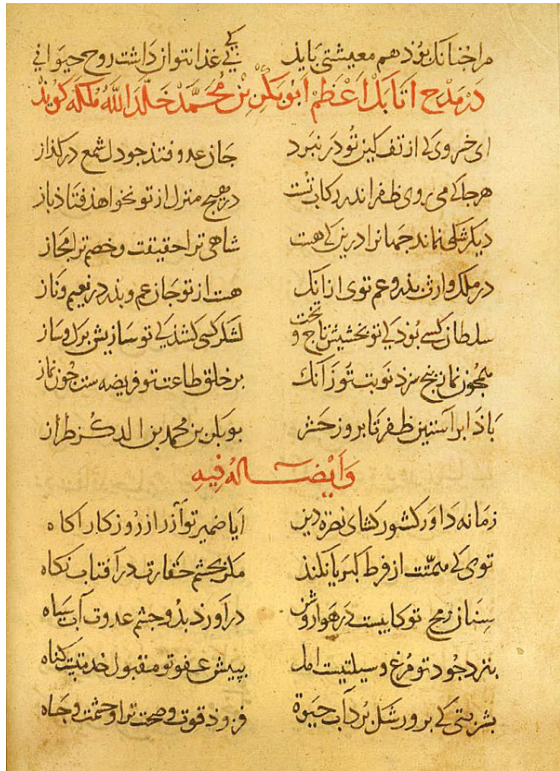 مرا جنانک بوذ هم معیشتی بایذ کی بی غذا نتوان داشت روح حیوانی
در مدح اتابک اعظم ابوبکر بن محمد خلد الله ملکه کوید
ای خسروی کی از تف کین تو در نبرد جان عدو فتذ جو دل شمع در کداز
هر جا کی می روی ظفر اندر رکاب تست در هیج منزل از تو نخواهذ فتاذ باز
دیکر شکی نماند جهانرا درین کی هست شاهی ترا حقیقت و خصم ترا مجاز
در ملک وارث بذر و عم توی از آنک هست از تو جان عم و بذر در نعیم و ناز
سلطان کسی بود کی تو بخشیش تاج و تخت لشکر کسی کشد کی تو سازیش برک و ساز
همجون نماز بنج سزد نوبت تو زآنک بر خلق طاعت تو فریضه ست جون نماز
باذا بر آستین ظفر تا بروز حشر بوبکر بن محمد بن الدکز طراز
وایضا له فیه
زمانه داور کشور کشای نصرة دین ایا ضمیر تو از راز روزکار آکاه
توی کی همتت از فرط کبریا نکند مکر بجشم حقارت در آفتاب نکاه
سنان رمح تو کابیست در هوا روشن در آورد بدو جشم عدوت آب سیاه
بنزد جود تو وسیلتیست امل ببیش عفو تو مقبول خدمتیست کناه
بشربتی کی برو رشک برد آب حیوة فزوذ قوت و صحت ترا و حشمت و جاه